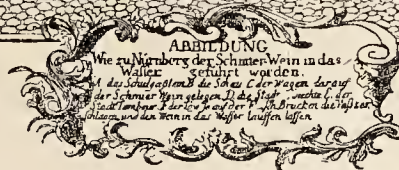 ABBILDUNG
Wie zu Nürnberg der Schmier-Wein in das
Wasser geführt worden.
A das Schuldgaßlein B die Schau C der Wagen darauf
der Schmier Wein gelegen D die Stadt E der
Stadt F der auf der Brucken die
schlagen und den Wein in das Wasser lauffen lassen